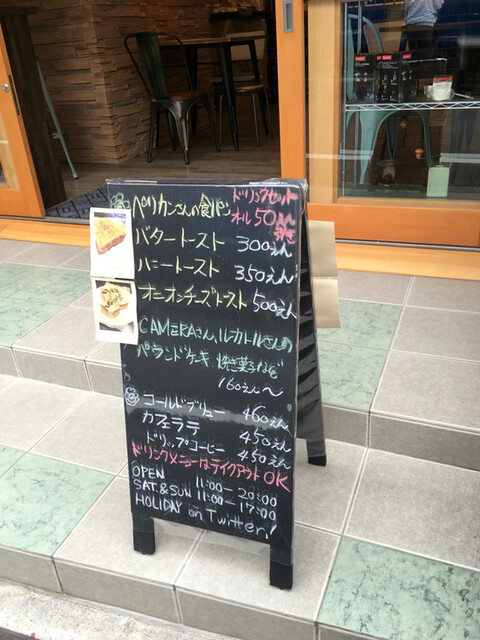 ペリカンさんの食パン
ドリンクセット
オール50えん引き
バタートースト 300えん
ハニートースト 350えん
オニオンチーズトースト 500えん
CAMERAさん、ルカトルさんの
パウンドケーキ 焼き菓子など
160えん〜
コールドブリュー 460えん
カフェラテ 450えん
ドリップコーヒー 450えん
ドリンクメニューはテイクアウトOK
OPEN 11:00-20:00
SAT.&SUN 11:00-17:00
HOLIDAY on Twitter!